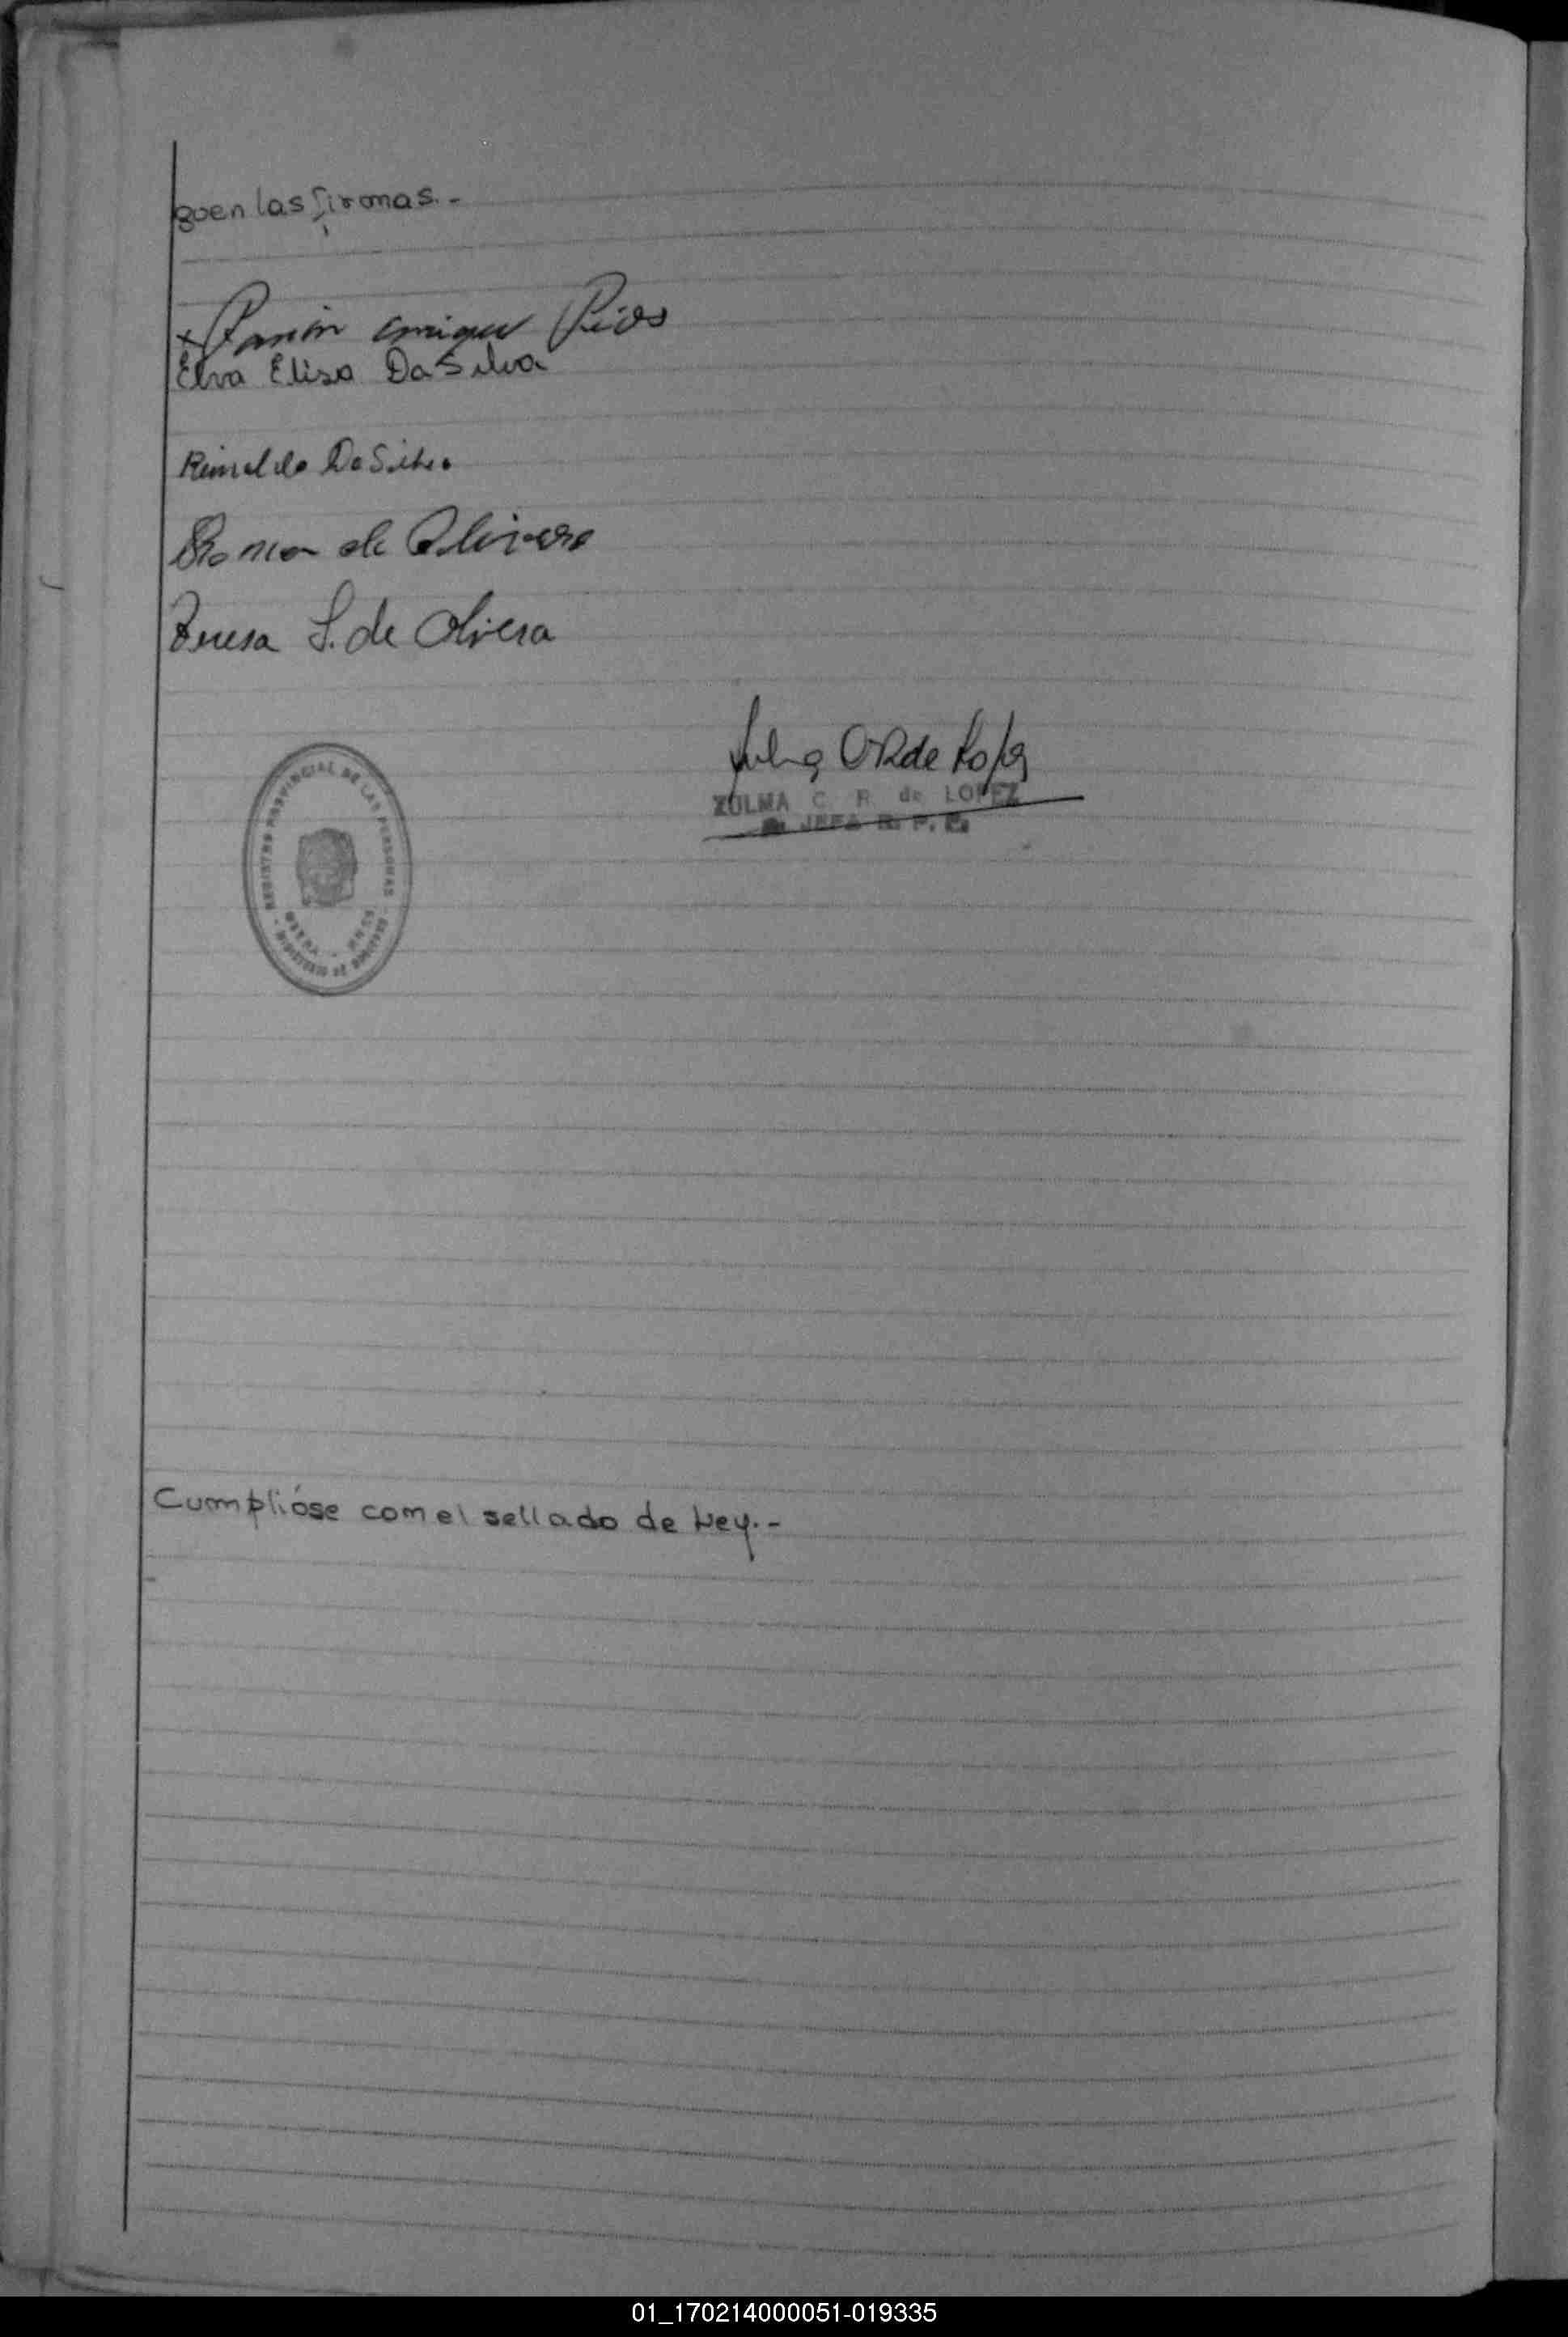 guen las firmas.-
x Ramón Enrique Rios
Elva Elisa Da Silva
Reinaldo Da Silva
de Olivera
Teresa S. de Olivera
Zulma C R de Lopez
ZULMA C. R. de LOPEZ
JEFA R. P. P.
REGISTRO PROVINCIAL DE LAS PERSONAS
MINISTERIO DE GOBIERNO
Cumplióse con el sellado de Ley.-
01_170214000051-019335